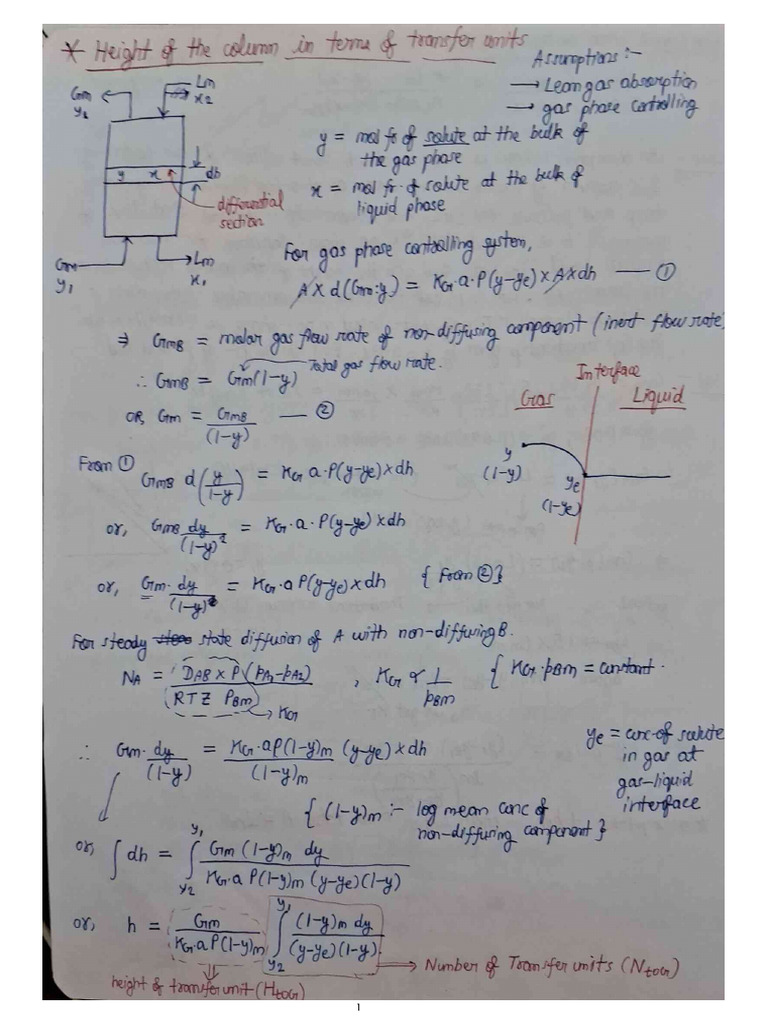 * Height of the column in terms of transfer units
Assumptions :-
→ Lean gas absorption
→ gas phase controlling
Gm
y2
Lm
x2
y x dh
differential
section
Gm
y1
Lm
x1
y = mol fr of solute at the bulk of
the gas phase
x = mol fr. of solute at the bulk of
liquid phase
For gas phase controlling system,
A × d(Gm·y) = KG·a·P(y-ye) × A × dh — ①
⇒ GmB = molar gas flow rate of non-diffusing component (inert flow rate)
∴ GmB = Gm(1-y) Total gas flow rate.
OR, Gm = GmB/(1-y) — ②
Interface
Gas Liquid
y
(1-y)
ye
(1-ye)
From ① GmB d(y/1-y) = KG a·P(y-ye) × dh
or, GmB dy/(1-y)² = KG·a·P(y-ye) × dh
or, Gm·dy/(1-y) = KG·a P(y-ye) × dh { From ② }
For steady state diffusion of A with non-diffusing B.
NA = DAB × P (pA1-pA2)/RTZ PBm , KG ∝ 1/pBm { KG·pBm = constant.
→ KG
∴ Gm·dy/(1-y) = KG·aP(1-y)m/(1-y)m (y-ye) × dh
ye = conc of solute
in gas at
gas-liquid
interface
{ (1-y)m :- log mean conc of
non-diffusing component }
or, ∫ dh = ∫ y2 y1 Gm (1-y)m dy/KG·a P(1-y)m (y-ye)(1-y)
or, h = Gm/KG·aP(1-y)m ∫ y2 y1 (1-y)m dy/(y-ye)(1-y)
→ Number of Transfer units (NtoG)
height of transfer unit (HtoG)
1